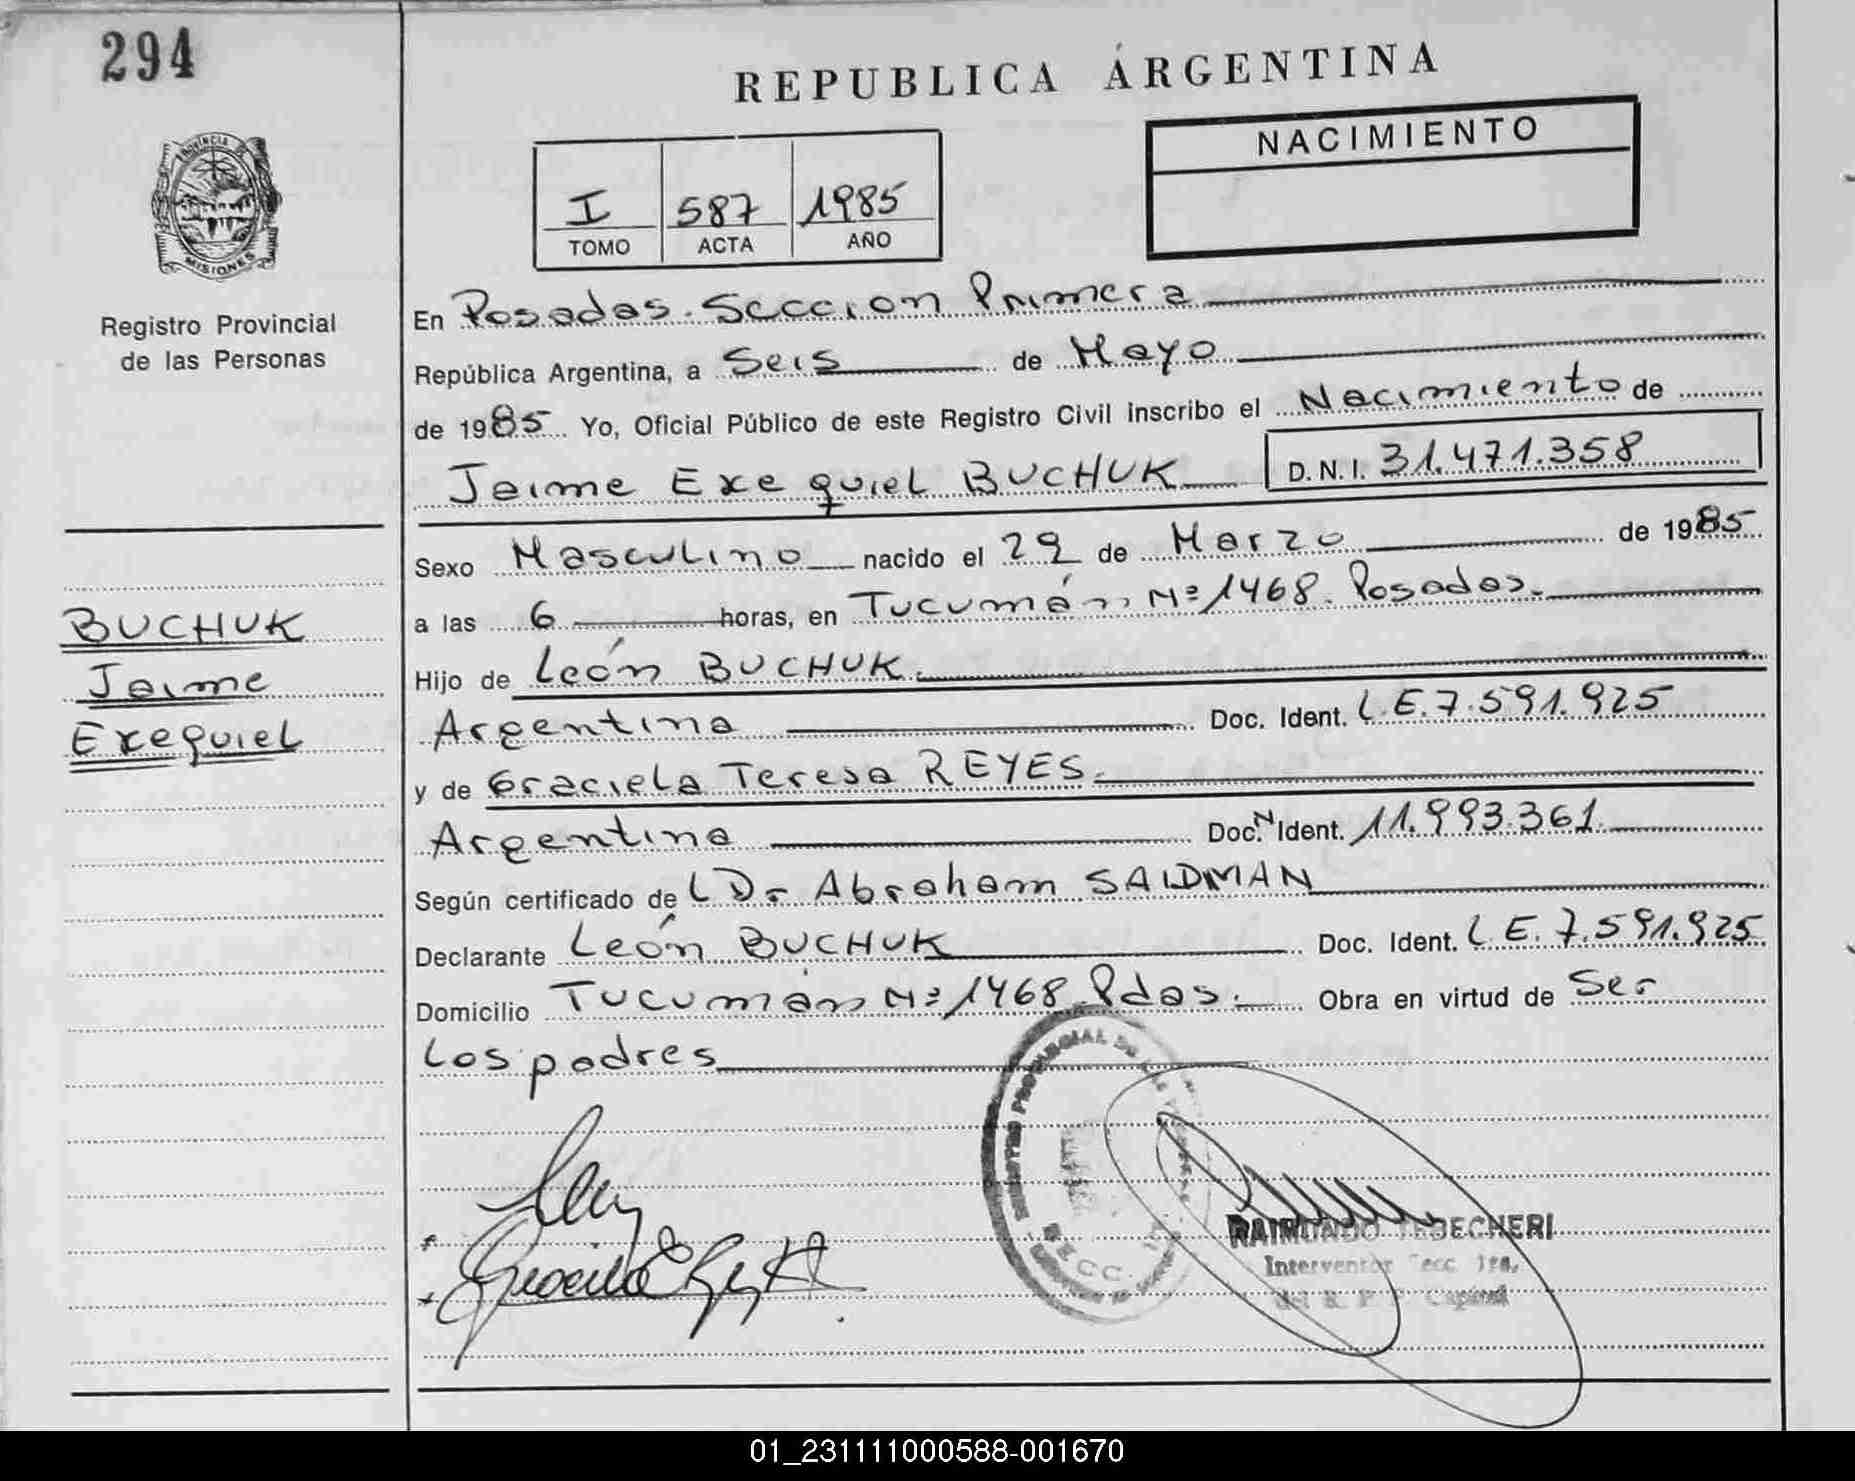 294
REPUBLICA ARGENTINA
NACIMIENTO
I 587 1985
TOMO ACTA AÑO
PROVINCIA DE
MISIONES
Registro Provincial
de las Personas
En Posadas. Seccion Primera
República Argentina, a Seis de Mayo
de 1985 Yo, Oficial Público de este Registro Civil inscribo el Nacimiento de
Jaime Exequiel BUCHUK D.N.I. 31.471.358
Sexo Masculino nacido el 29 de Marzo de 1985
a las 6 horas, en Tucumán Nº 1468. Posadas.
Hijo de León BUCHUK.
Argentina Doc. Ident. L.E. 7.591.925
y de Graciela Teresa REYES.
Argentina Doc. N Ident. 11.993.361
Según certificado de L Dr Abraham SAIDMAN
Declarante León BUCHUK Doc. Ident. L.E. 7.591.925
Domicilio Tucumán Nº 1468. Pdas. Obra en virtud de Ser
Los padres
BUCHUK
Jaime
Exequiel
REGISTRO PROVINCIAL DE LAS
RAIMUNDO TEDECHERI
Interventor Secc. 1ra.
del R. P. P. Capital
01_231111000588-001670